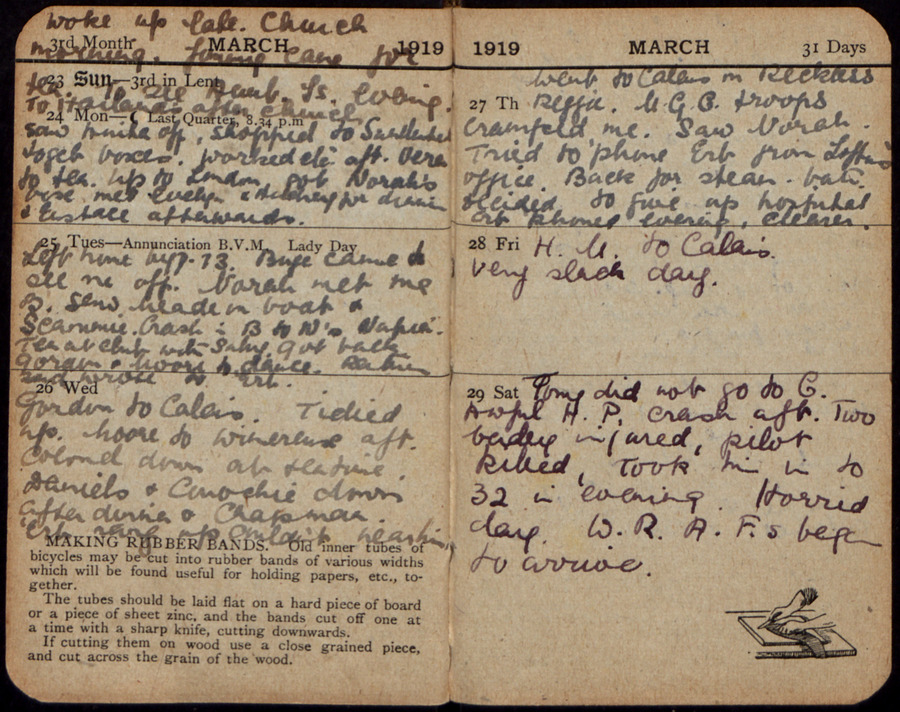 woke up late. Church
3rd Month MARCH 1919
morning. for
23 Sun—3rd in Lent
tea. To see evening.
To after church
24 Mon—☾ Last Quarter, 8.34 p.m
saw off, shopped to
to get boxes. worked etc aft.
to tea. Up to London got Norah's
met Evelyn & for dinner
& Eustace afterwards.
25 Tues—Annunciation B.V.M. Lady Day
Left home by 7.13. came to
see me off. Norah met me
B. Send. made in boat &
Crash B to N's
Tea at club with Got back
Gordon & Moore to dance.
and wrote to Erb.
26 Wed
Gordon to Calais. Tidied
up. Moore to Wimereux aft.
Colonel down at teatime.
Daniels & down
after dinner & Chapman.
Erb rang up couldn't
MAKING RUBBER BANDS. Old inner tubes of
bicycles may be cut into rubber bands of various widths
which will be found useful for holding papers, etc., to-
gether.
The tubes should be laid flat on a hard piece of board
or a piece of sheet zinc, and the bands cut off one at
a time with a sharp knife, cutting downwards.
If cutting them on wood use a close grained piece,
and cut across the grain of the wood.
1919 MARCH 31 Days
went to Calais in Reckless
27 Th Reggie. M.G.C. troops
me. Saw Norah.
Tried to 'phone Erb from
office. Back for
decided to give up hospital
Erb phoned evening, clearer.
28 Fri H. M. to Calais.
very slack day.
29 Sat Tony did not go to C.
Awful H. P. crash aft. Two
badly injured, pilot
killed, Took him in to
32 in evening. Horrid
day. W. R. A. F.s began
to arrive.